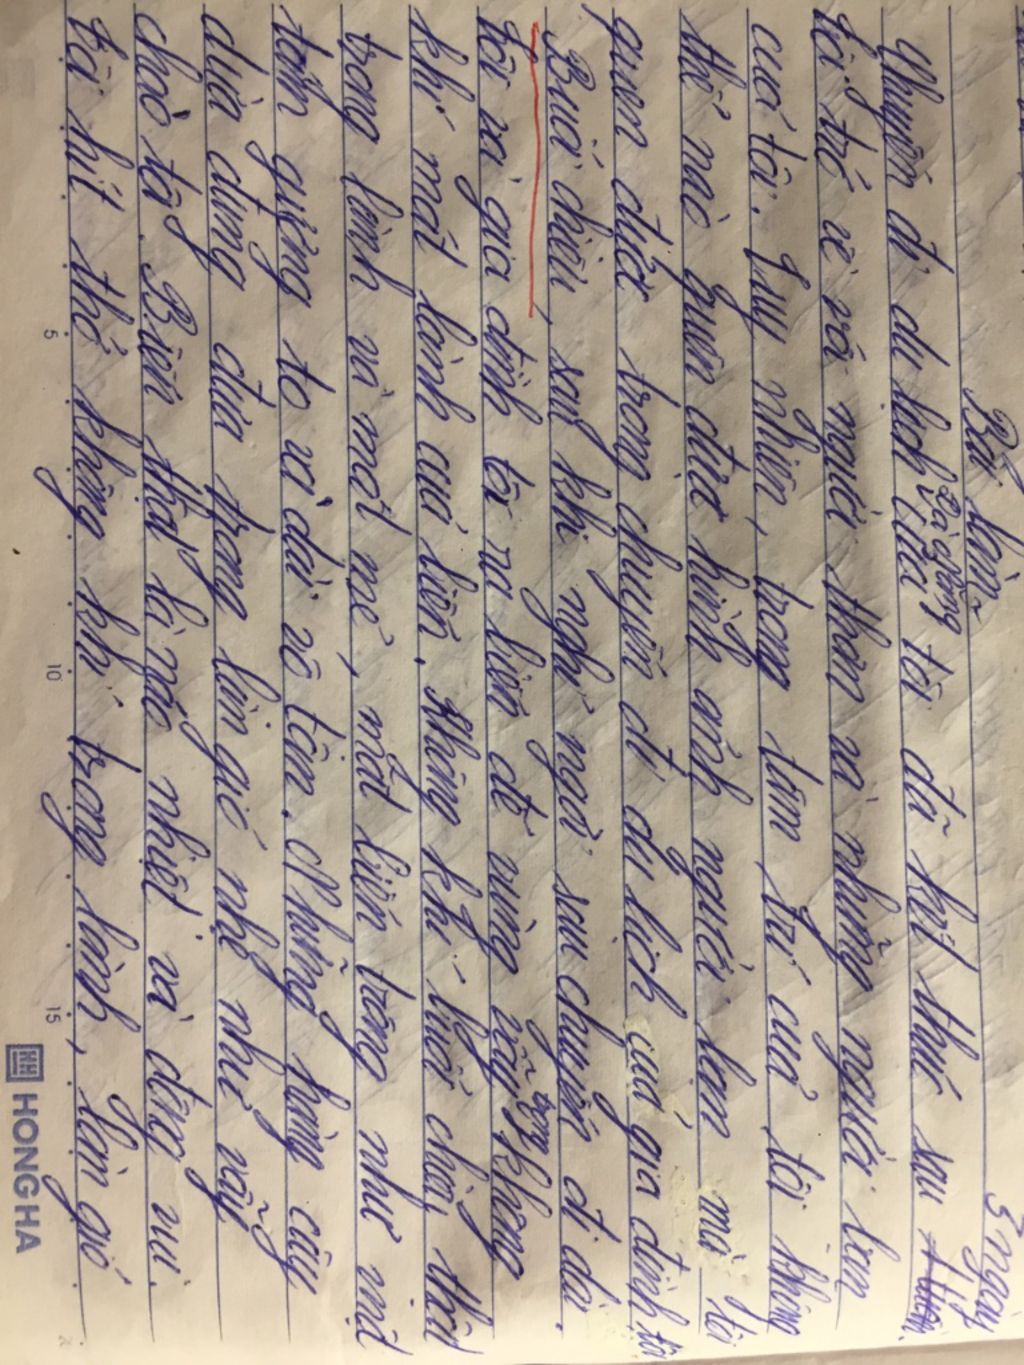 Bài làm
3 ngày
Chuyến đi du lịch Hà Cối tôi đã kết thúc sau tuần.
tôi trở về với người thân và những người bạn
của tôi. Tuy nhiên, trong tâm trí của tôi không
thể nào quên được hình ảnh người bạn mà tôi
quen được trong chuyến đi du lịch của gia đình tôi
Buổi chiều, sau khi nghỉ ngơi sau chuyến đi dài.
tôi và gia đình tôi ra biển để cùng hòa trong không
khí mát lành của biển. Không khí buổi chiều thật
trong lành và mát mẻ, mặt biển trông như một
tấm gương to và dài vô tận. Những hàng cây
dừa đung đưa trong làn gió nhẹ như vẫy
chào tôi. Biển thật là náo nhiệt và đông vui.
tôi hít thở không khí trong lành, làn gió
5 10 15
HONG HA